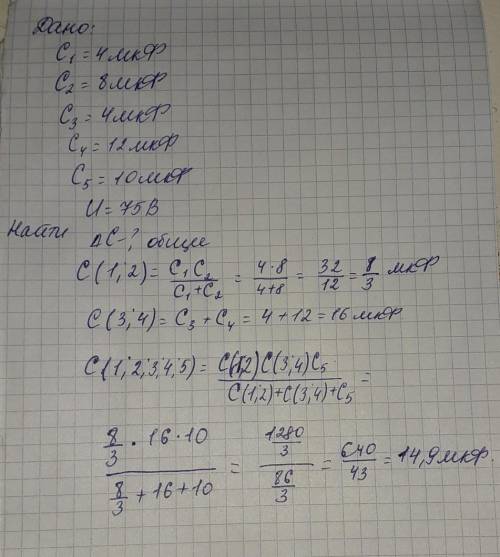 Дано:
C₁ = 4 мкФ
C₂ = 8 мкФ
C₃ = 4 мкФ
C₄ = 12 мкФ
C₅ = 10 мкФ
U = 75 В
Найти ΔC - ? общие
C(1,2) = C₁C₂ / C₁+C₂ = 4·8 / 4+8 = 32/12 = 8/3 мкФ
C(3,4) = C₃ + C₄ = 4 + 12 = 16 мкФ
C(1,2,3,4,5) = C(1,2)C(3,4)C₅ / C(1,2)+C(3,4)+C₅ =
8/3 · 16 · 10 / 8/3 + 16 + 10 = 1280/3 / 86/3 = 640/43 = 14,9 мкФ.